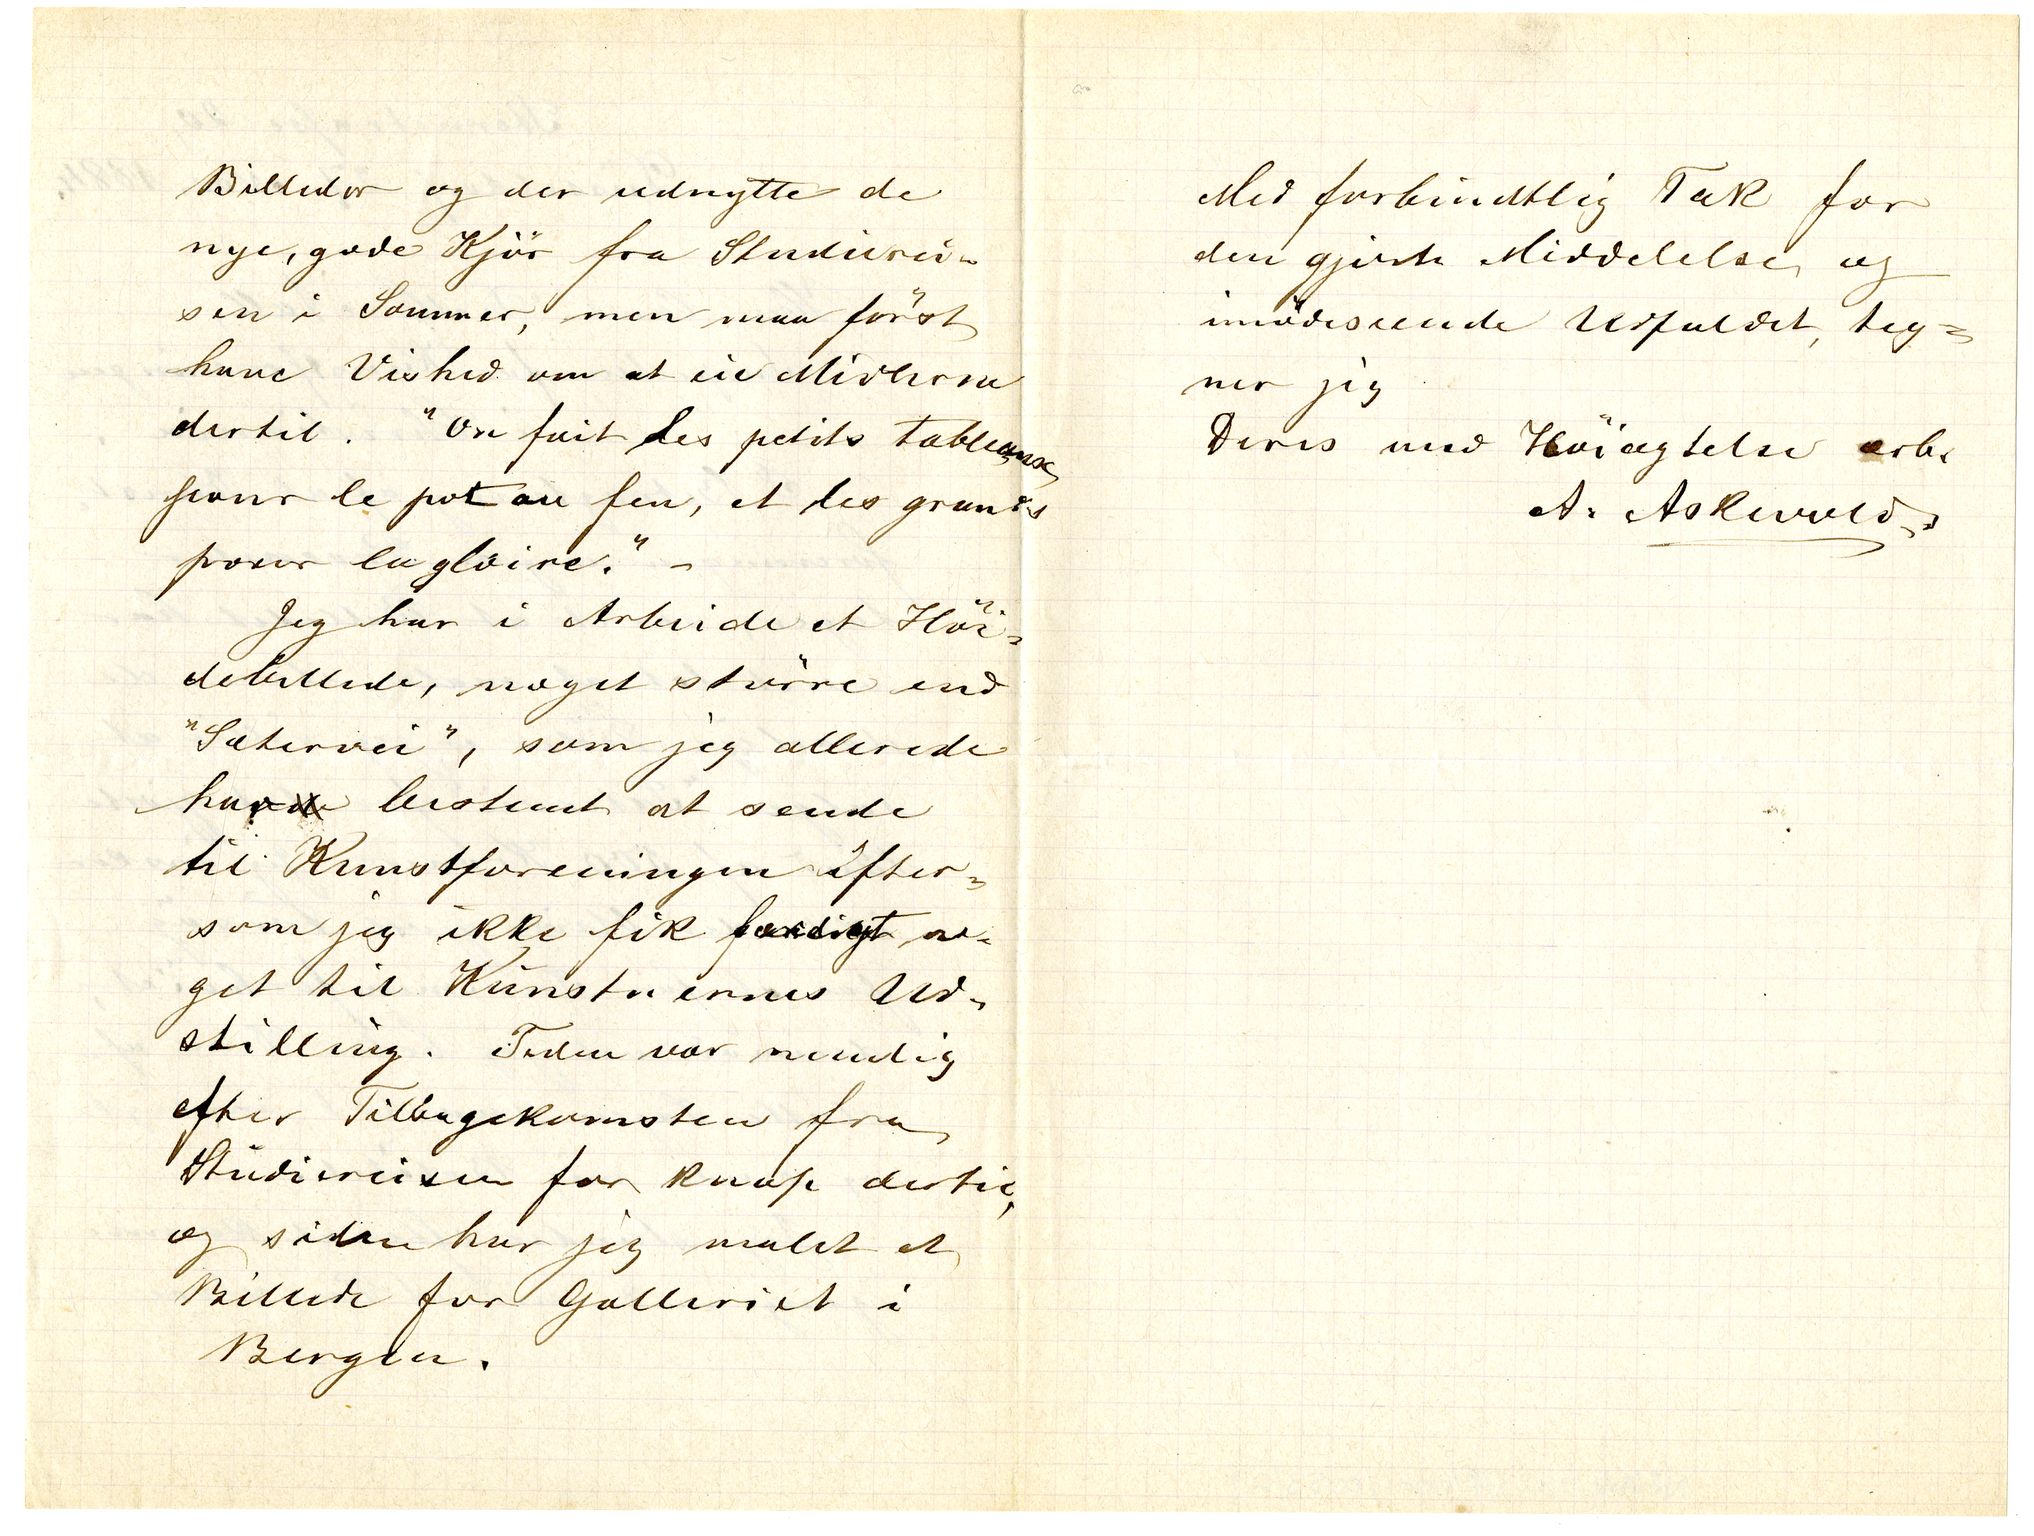 Billeder og der udnytte de
nye, gode Kjör fra Studierei-
sen i Sommer, men maa först
have Vished om at eie Midlerne
dertil. "On fait les petits tableaux
pour le pot au feu, et les grands
pour la gloire." -
Jeg har i Arbeide et Höi-
debillede, noget större end
"Sætervei", som jeg allerede
har bestemt at sende
til Kunstforeningen efter-
som jeg ikke fik færdigt no-
get til Kunstnernes Ud-
stilling. Tiden var nemlig
efter Tilbagekomsten fra
Studiereisen for knap dertil,
og siden har jeg malet et
Billede for Galleriet i
Bergen.
Med forbindtlig Tak for
den gjorte Meddelelse og
imödeseende Udfaldet, teg-
ner jeg
Deres med Höiagtelse erb.
A. Askevold.